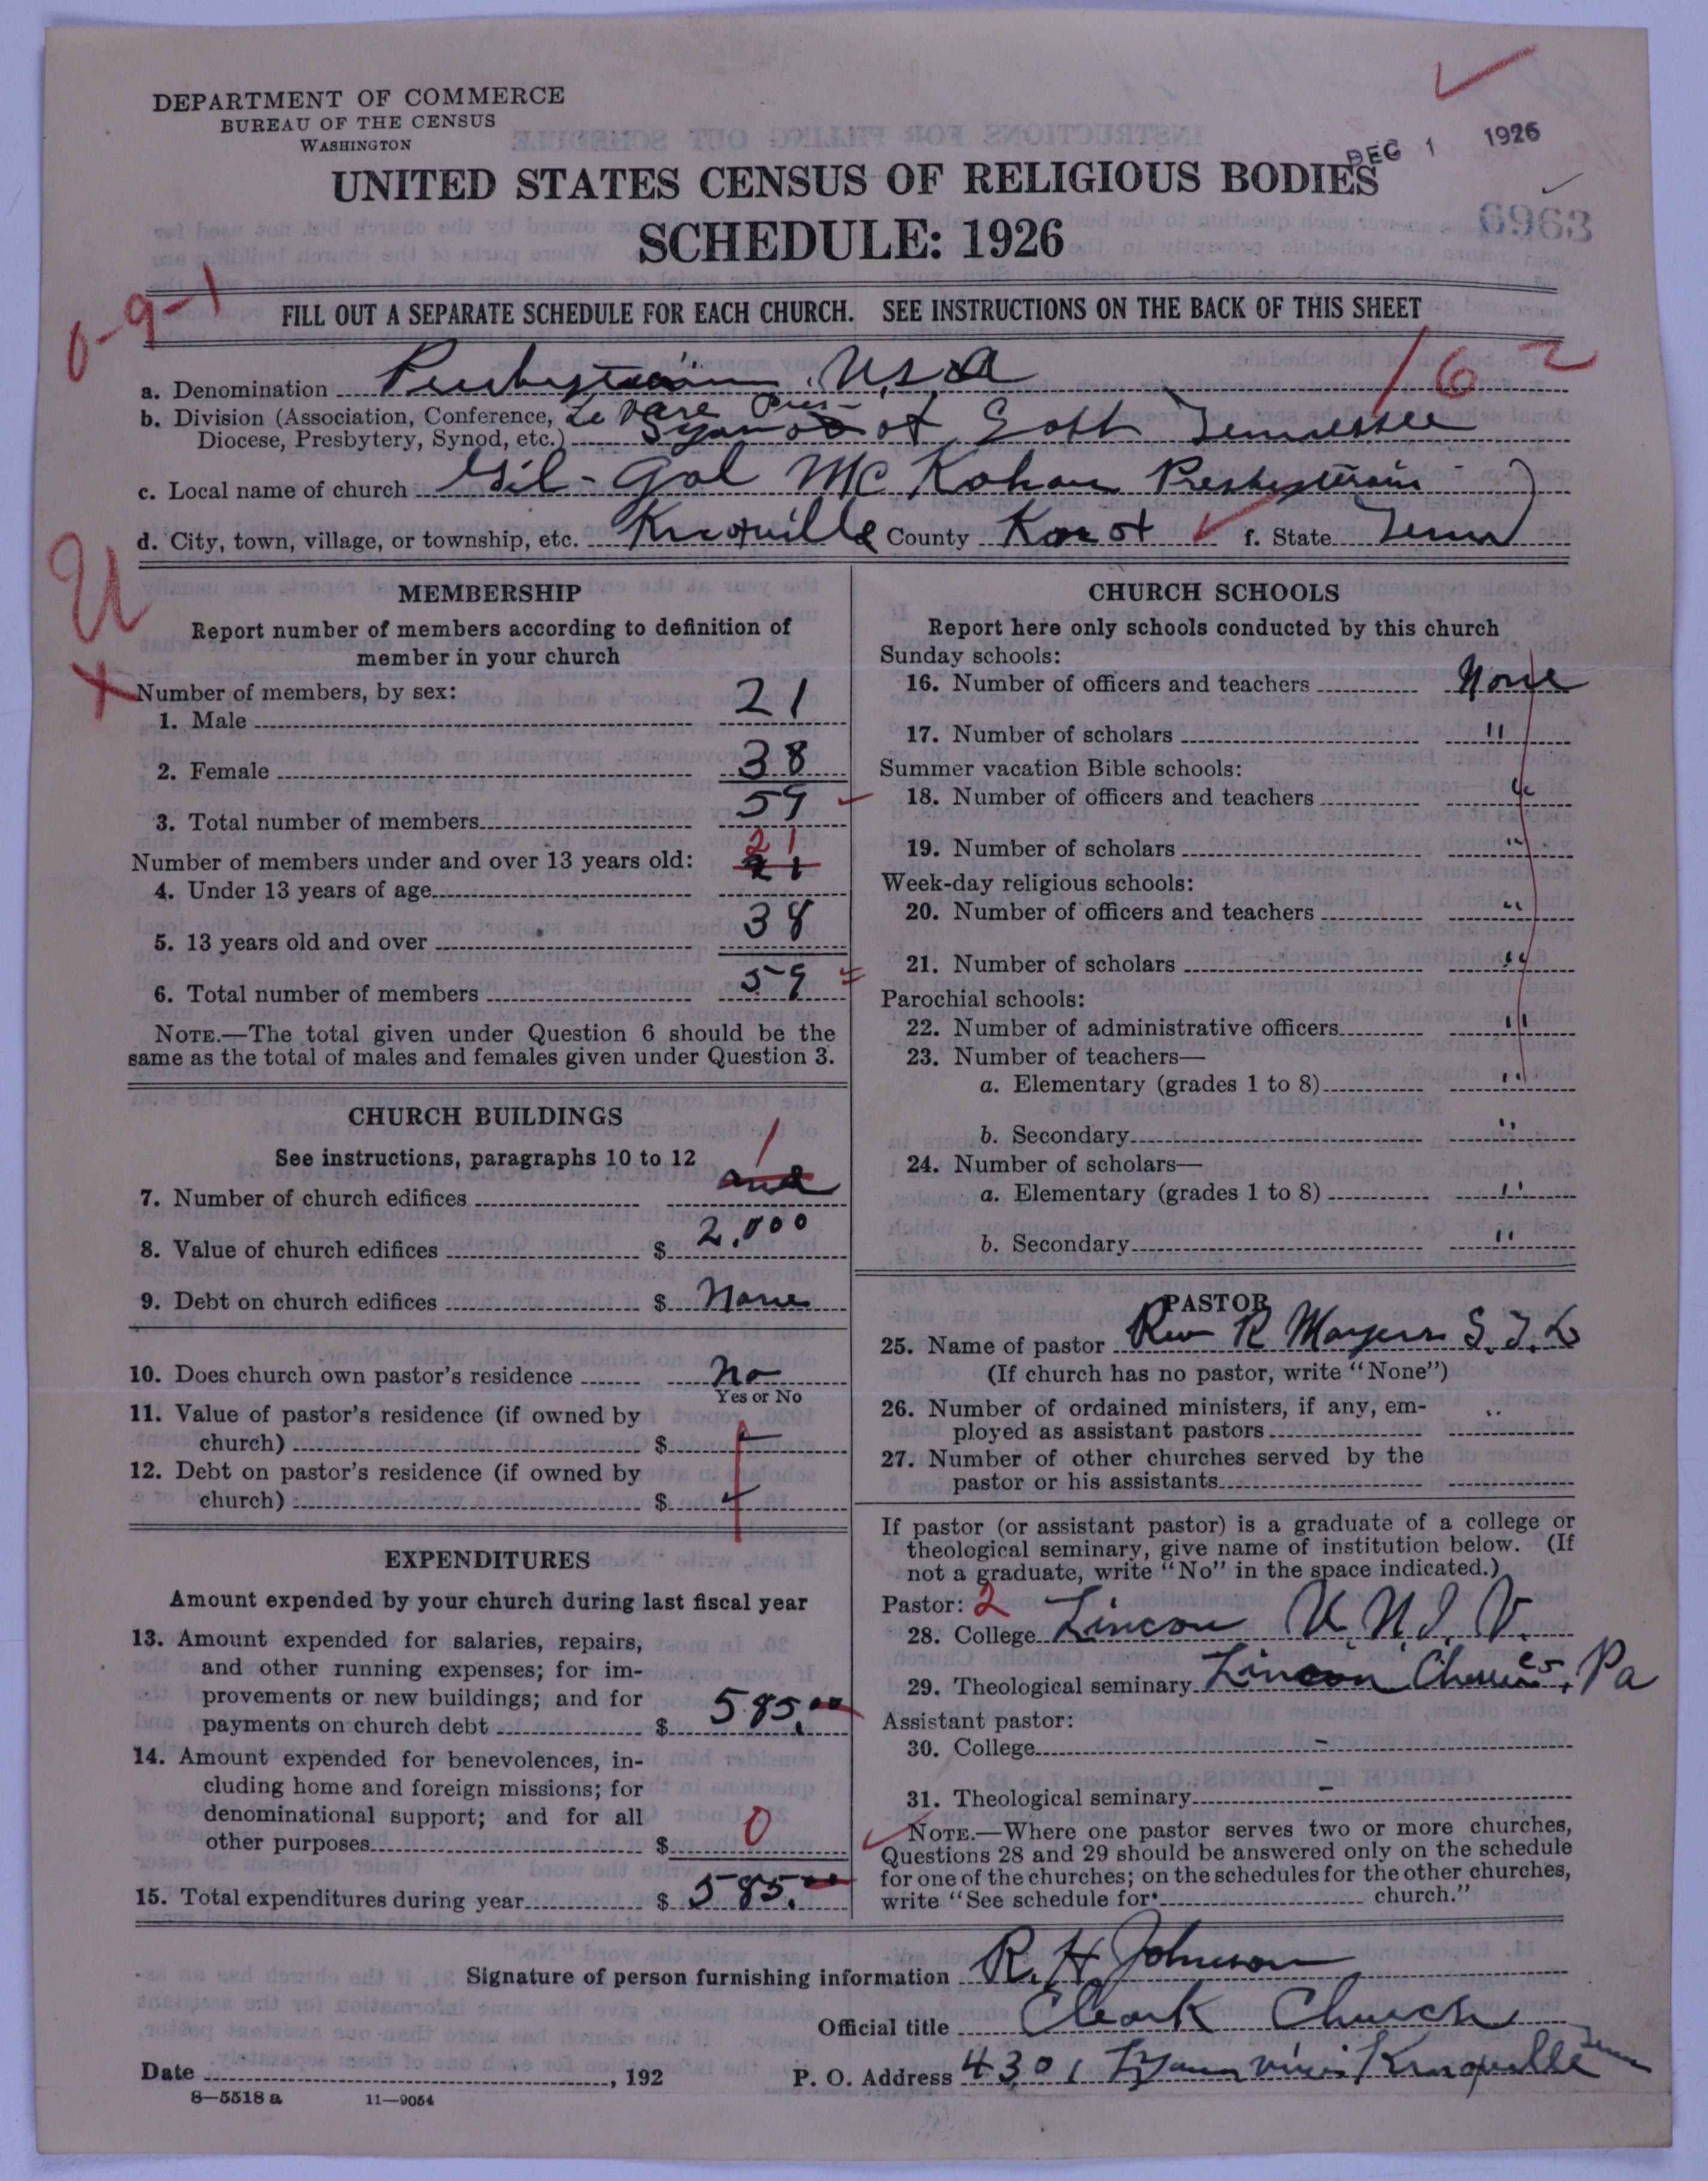 DEPARTMENT OF COMMERCE
BUREAU OF THE CENSUS
WASHINGTON
DEC 1 1926
UNITED STATES CENSUS OF RELIGIOUS BODIES
SCHEDULE: 1926
6963
0-9-1
FILL OUT A SEPARATE SCHEDULE FOR EACH CHURCH. SEE INSTRUCTIONS ON THE BACK OF THIS SHEET
162
a. Denomination Presbyterian U.S.A
b. Division (Association, Conference, Le Vere Pres-
Diocese, Presbytery, Synod, etc.) Synod of East Tennessee
c. Local name of church Gil-Gal Mc Kohan Presbyterian
d. City, town, village, or township, etc. Knoxville County Knox f. State Tenn
U
x
MEMBERSHIP
Report number of members according to definition of
member in your church
Number of members, by sex:
1. Male 21
2. Female 38
3. Total number of members 59
Number of members under and over 13 years old: 21
4. Under 13 years of age 21
5. 13 years old and over 38
6. Total number of members 59
NOTE.—The total given under Question 6 should be the
same as the total of males and females given under Question 3.
CHURCH BUILDINGS
See instructions, paragraphs 10 to 12
7. Number of church edifices 1
8. Value of church edifices $ 2,000
9. Debt on church edifices $ None
10. Does church own pastor's residence No
Yes or No
11. Value of pastor's residence (if owned by
church) $
12. Debt on pastor's residence (if owned by
church) $
EXPENDITURES
Amount expended by your church during last fiscal year
13. Amount expended for salaries, repairs,
and other running expenses; for im-
provements or new buildings; and for
payments on church debt $ 585.00
14. Amount expended for benevolences, in-
cluding home and foreign missions; for
denominational support; and for all
other purposes $ 0
15. Total expenditures during year $ 585.00
CHURCH SCHOOLS
Report here only schools conducted by this church
Sunday schools:
16. Number of officers and teachers None
17. Number of scholars "
Summer vacation Bible schools:
18. Number of officers and teachers "
19. Number of scholars "
Week-day religious schools:
20. Number of officers and teachers "
21. Number of scholars "
Parochial schools:
22. Number of administrative officers "
23. Number of teachers—
a. Elementary (grades 1 to 8) "
b. Secondary "
24. Number of scholars—
a. Elementary (grades 1 to 8) "
b. Secondary "
PASTOR
25. Name of pastor Rev R Mayers S.T.B
(If church has no pastor, write "None")
26. Number of ordained ministers, if any, em-
ployed as assistant pastors "
27. Number of other churches served by the
pastor or his assistants
If pastor (or assistant pastor) is a graduate of a college or
theological seminary, give name of institution below. (If
not a graduate, write "No" in the space indicated.)
Pastor: 2
28. College Lincon U.N.I.V.
29. Theological seminary Lincon Pa
Assistant pastor:
30. College -
31. Theological seminary -
NOTE.—Where one pastor serves two or more churches,
Questions 28 and 29 should be answered only on the schedule
for one of the churches; on the schedules for the other churches,
write "See schedule for church."
Signature of person furnishing information R. H Johnson
Official title Clark Church
Date , 192 P. O. Address 4301 Knoxville Tenn
8—5518 a 11—9054